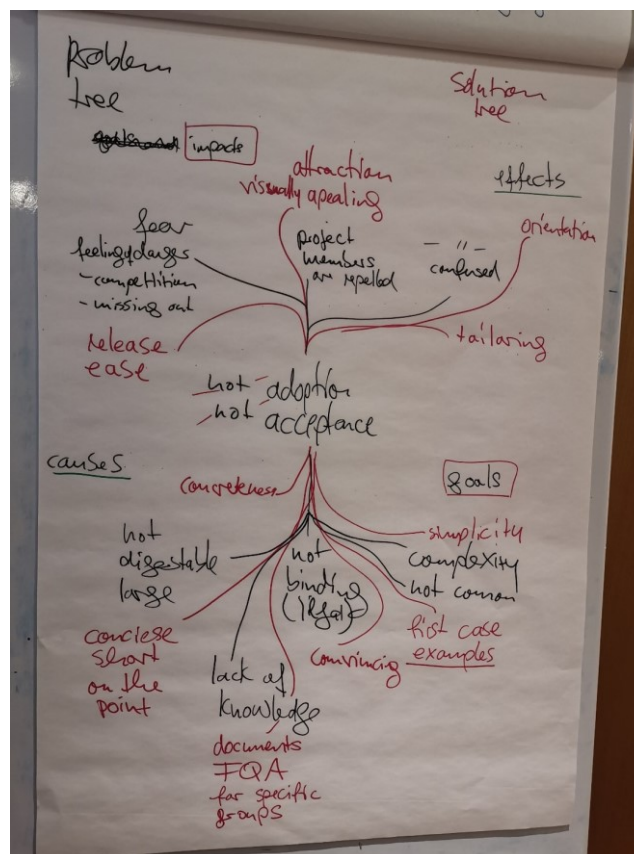 Problem
tree
Solution
tree
impacts
effects
attraction
visually apealing
orientation
fear
feeling of danger
- competitition
- missing out
project
members
are repelled
- " -
confused
release
ease
tailoring
not adoption
not acceptance
causes
goals
concreteness
simplicity
not
digestable
large
not
binding
(legal)
complexity
not comon
conciese
short
on the
point
lack of
knowledge
convincing
first case
examples
documents
FQA
for specific
groups